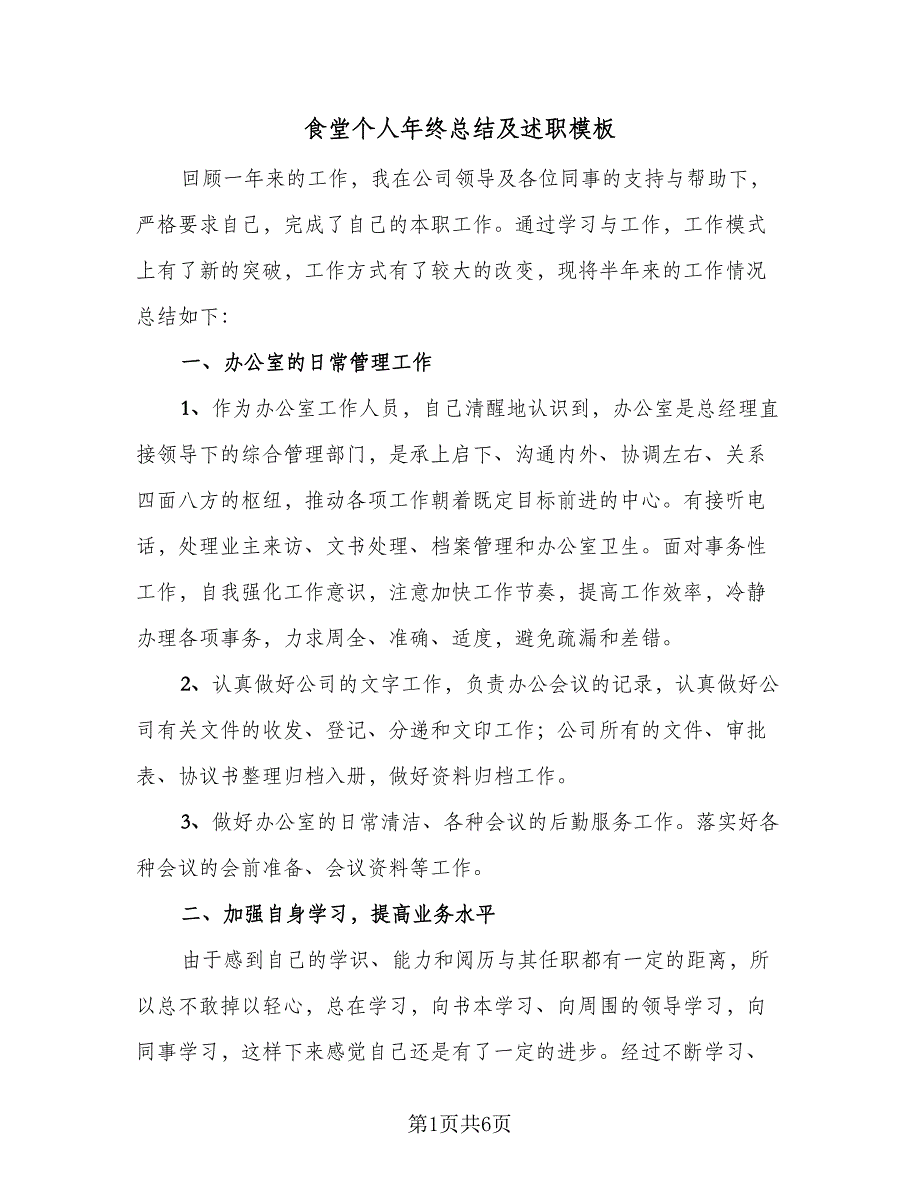 食堂个人年终总结及述职模板
回顾一年来的工作，我在公司领导及各位同事的支持与帮助下，
严格要求自己，完成了自己的本职工作。通过学习与工作，工作模式
上有了新的突破，工作方式有了较大的改变，现将半年来的工作情况
总结如下：
一、办公室的日常管理工作
1、作为办公室工作人员，自己清醒地认识到，办公室是总经理直
接领导下的综合管理部门，是承上启下、沟通内外、协调左右、关系
四面八方的枢纽，推动各项工作朝着既定目标前进的中心。有接听电
话，处理业主来访、文书处理、档案管理和办公室卫生。面对事务性
工作，自我强化工作意识，注意加快工作节奏，提高工作效率，冷静
办理各项事务，力求周全、准确、适度，避免疏漏和差错。
2、认真做好公司的文字工作，负责办公会议的记录，认真做好公
司有关文件的收发、登记、分递和文印工作；公司所有的文件、审批
表、协议书整理归档入册，做好资料归档工作。
3、做好办公室的日常清洁、各种会议的后勤服务工作。落实好各
种会议的会前准备、会议资料等工作。
二、加强自身学习，提高业务水平
由于感到自己的学识、能力和阅历与其任职都有一定的距离，所
以总不敢掉以轻心，总在学习，向书本学习、向周围的领导学习，向
同事学习，这样下来感觉自己还是有了一定的进步。经过不断学习、
第1页共6页